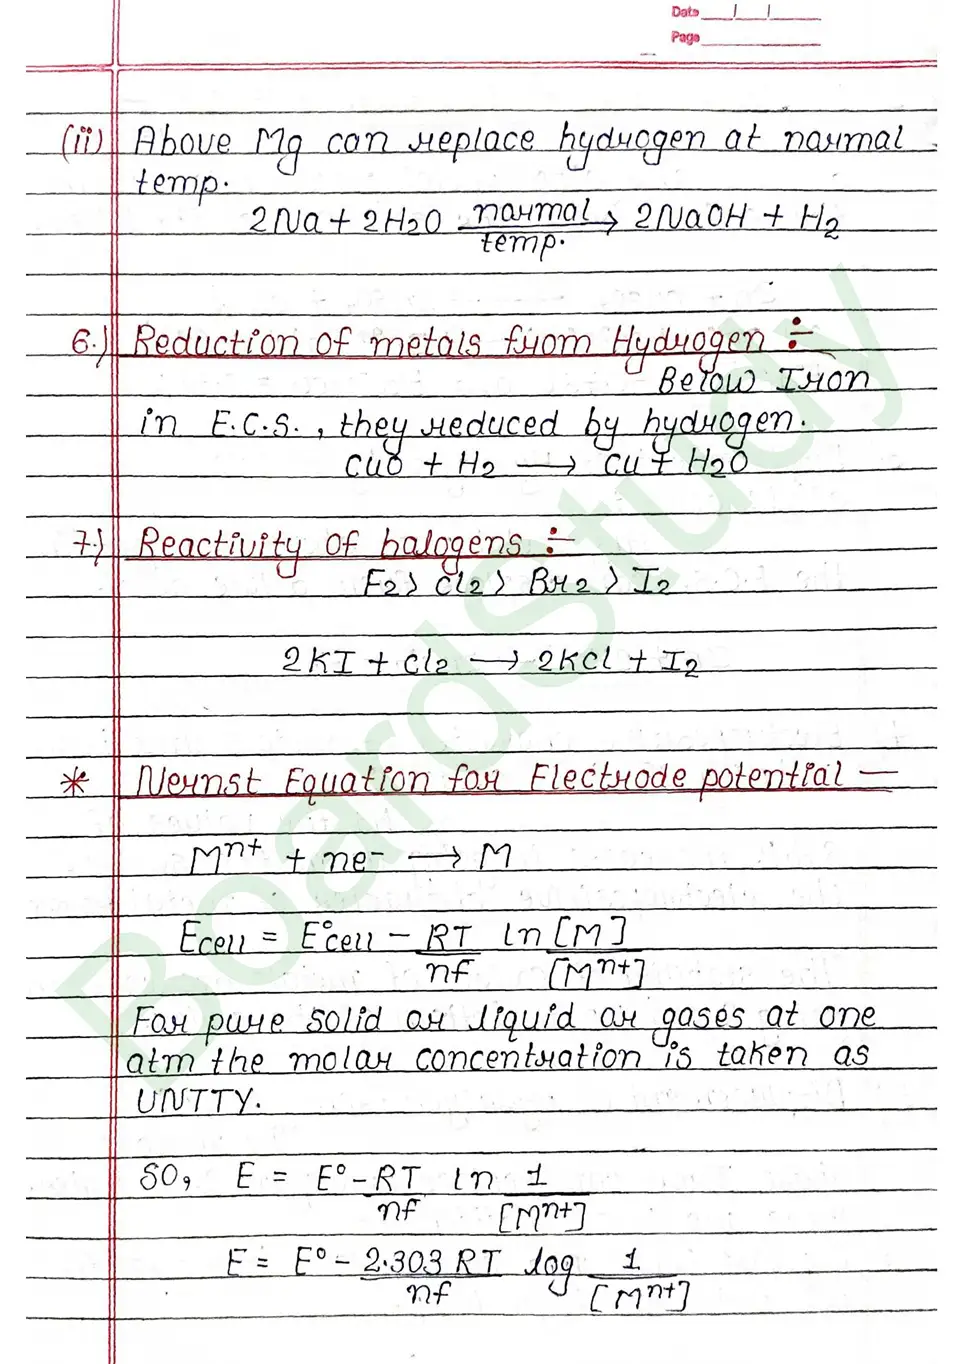 Date
Page
(ii) Above Mg can replace hydrogen at normal
temp.
2Na + 2H2O normal temp. → 2NaOH + H2
6.) Reduction of metals from Hydrogen ÷
Below Iron
in E.C.S., they reduced by hydrogen.
CuO + H2 → Cu + H2O
7.) Reactivity of halogens ÷
F2 > Cl2 > Br2 > I2
2KI + Cl2 → 2KCl + I2
* Nernst Equation for Electrode potential —
Mⁿ⁺ + ne⁻ → M
Ecell = E°cell - RT/nf ln [M]/[Mⁿ⁺]
For pure solid or liquid or gases at one
atm the molar concentration is taken as
UNTTY.
SO, E = E° - RT/nf ln 1/[Mⁿ⁺]
E = E° - 2.303 RT/nf log 1/[Mⁿ⁺]
BoardStudy